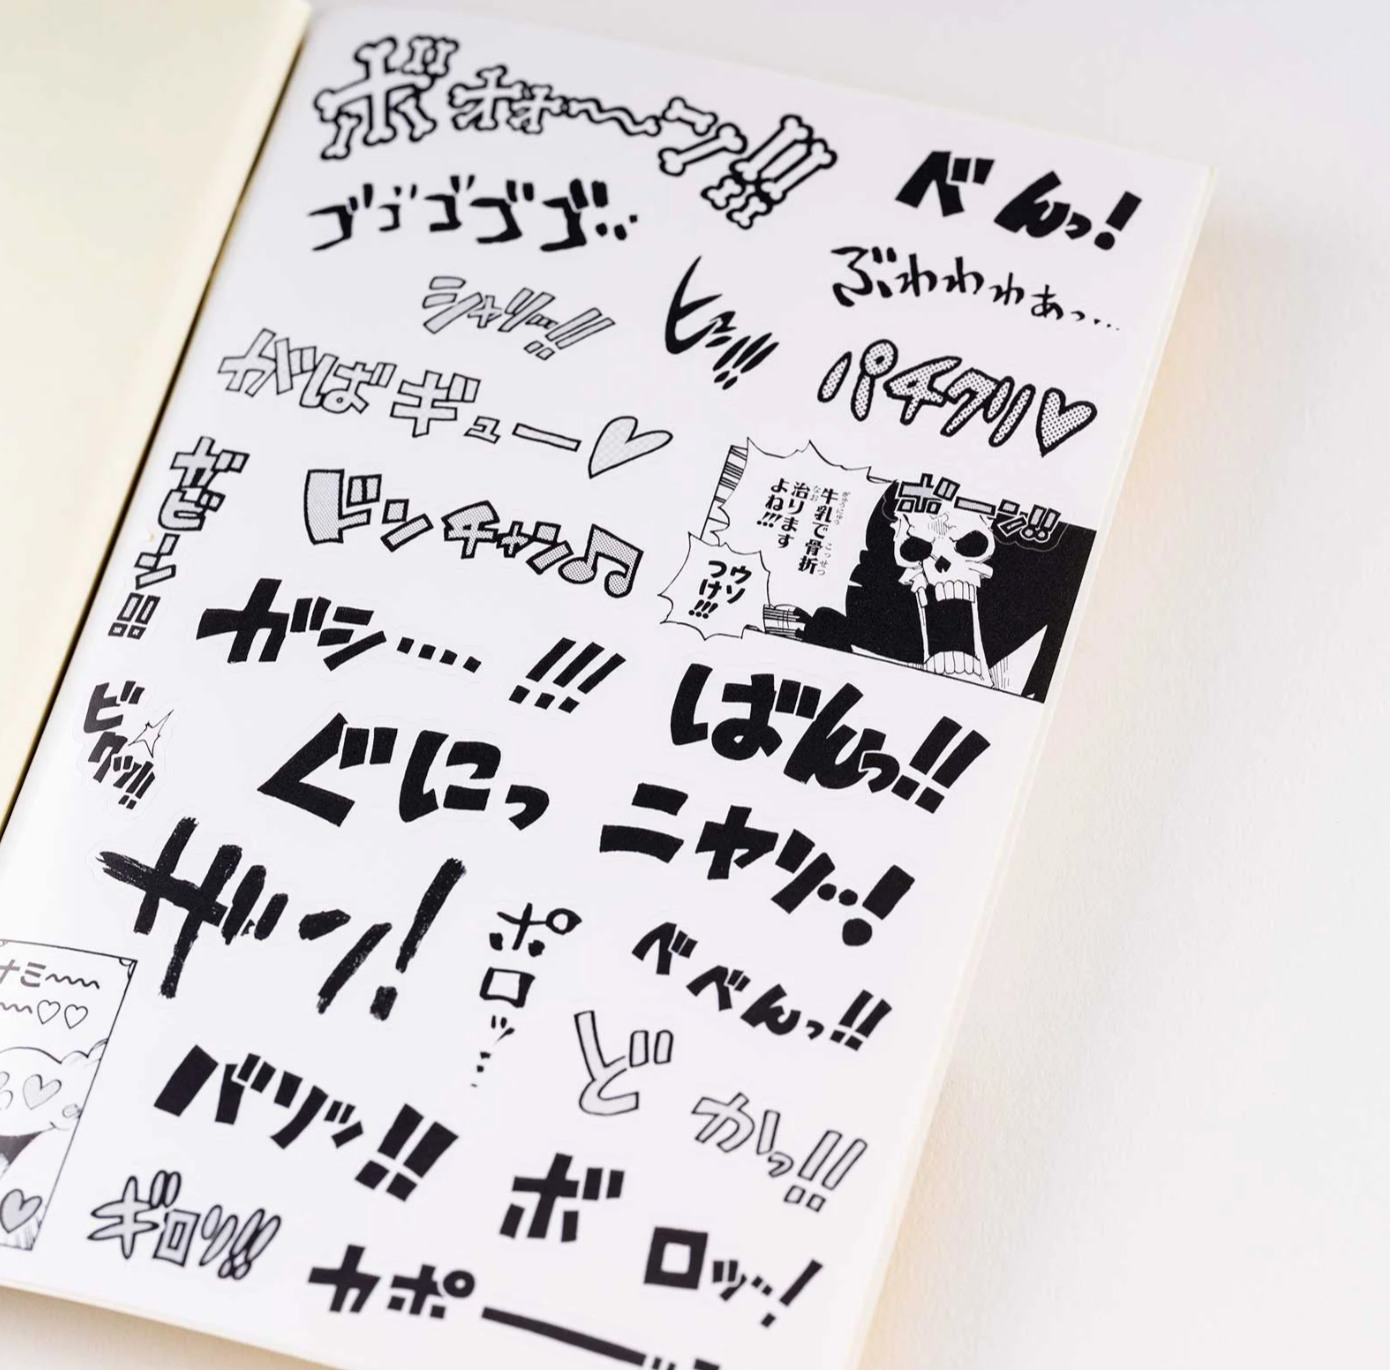 ボォォ〜〜ン!!
べんっ!
ゴゴゴゴゴ…
ぶわわわぁっ…
シャリッ…!!
ヒュ!!!
パチクリ♡
やばギュー♡
ガビーン!!
ドンチャン♪
牛乳で骨折
治ります
よね!!!
ぎゅうにゅう
こっせつ
なお
ウソ
つけ!!!
ボーン!!
ガシ…. !!!
ばんっ!!
ビクッ!!!
ぐにっ
ニヤリ…!
ザン!
ポロッ…
べべんっ!!
ナミ〜〜
〜〜♡♡
どかっ!!
バリッ!!
ボロッ…!
ギロリ!!
カポー